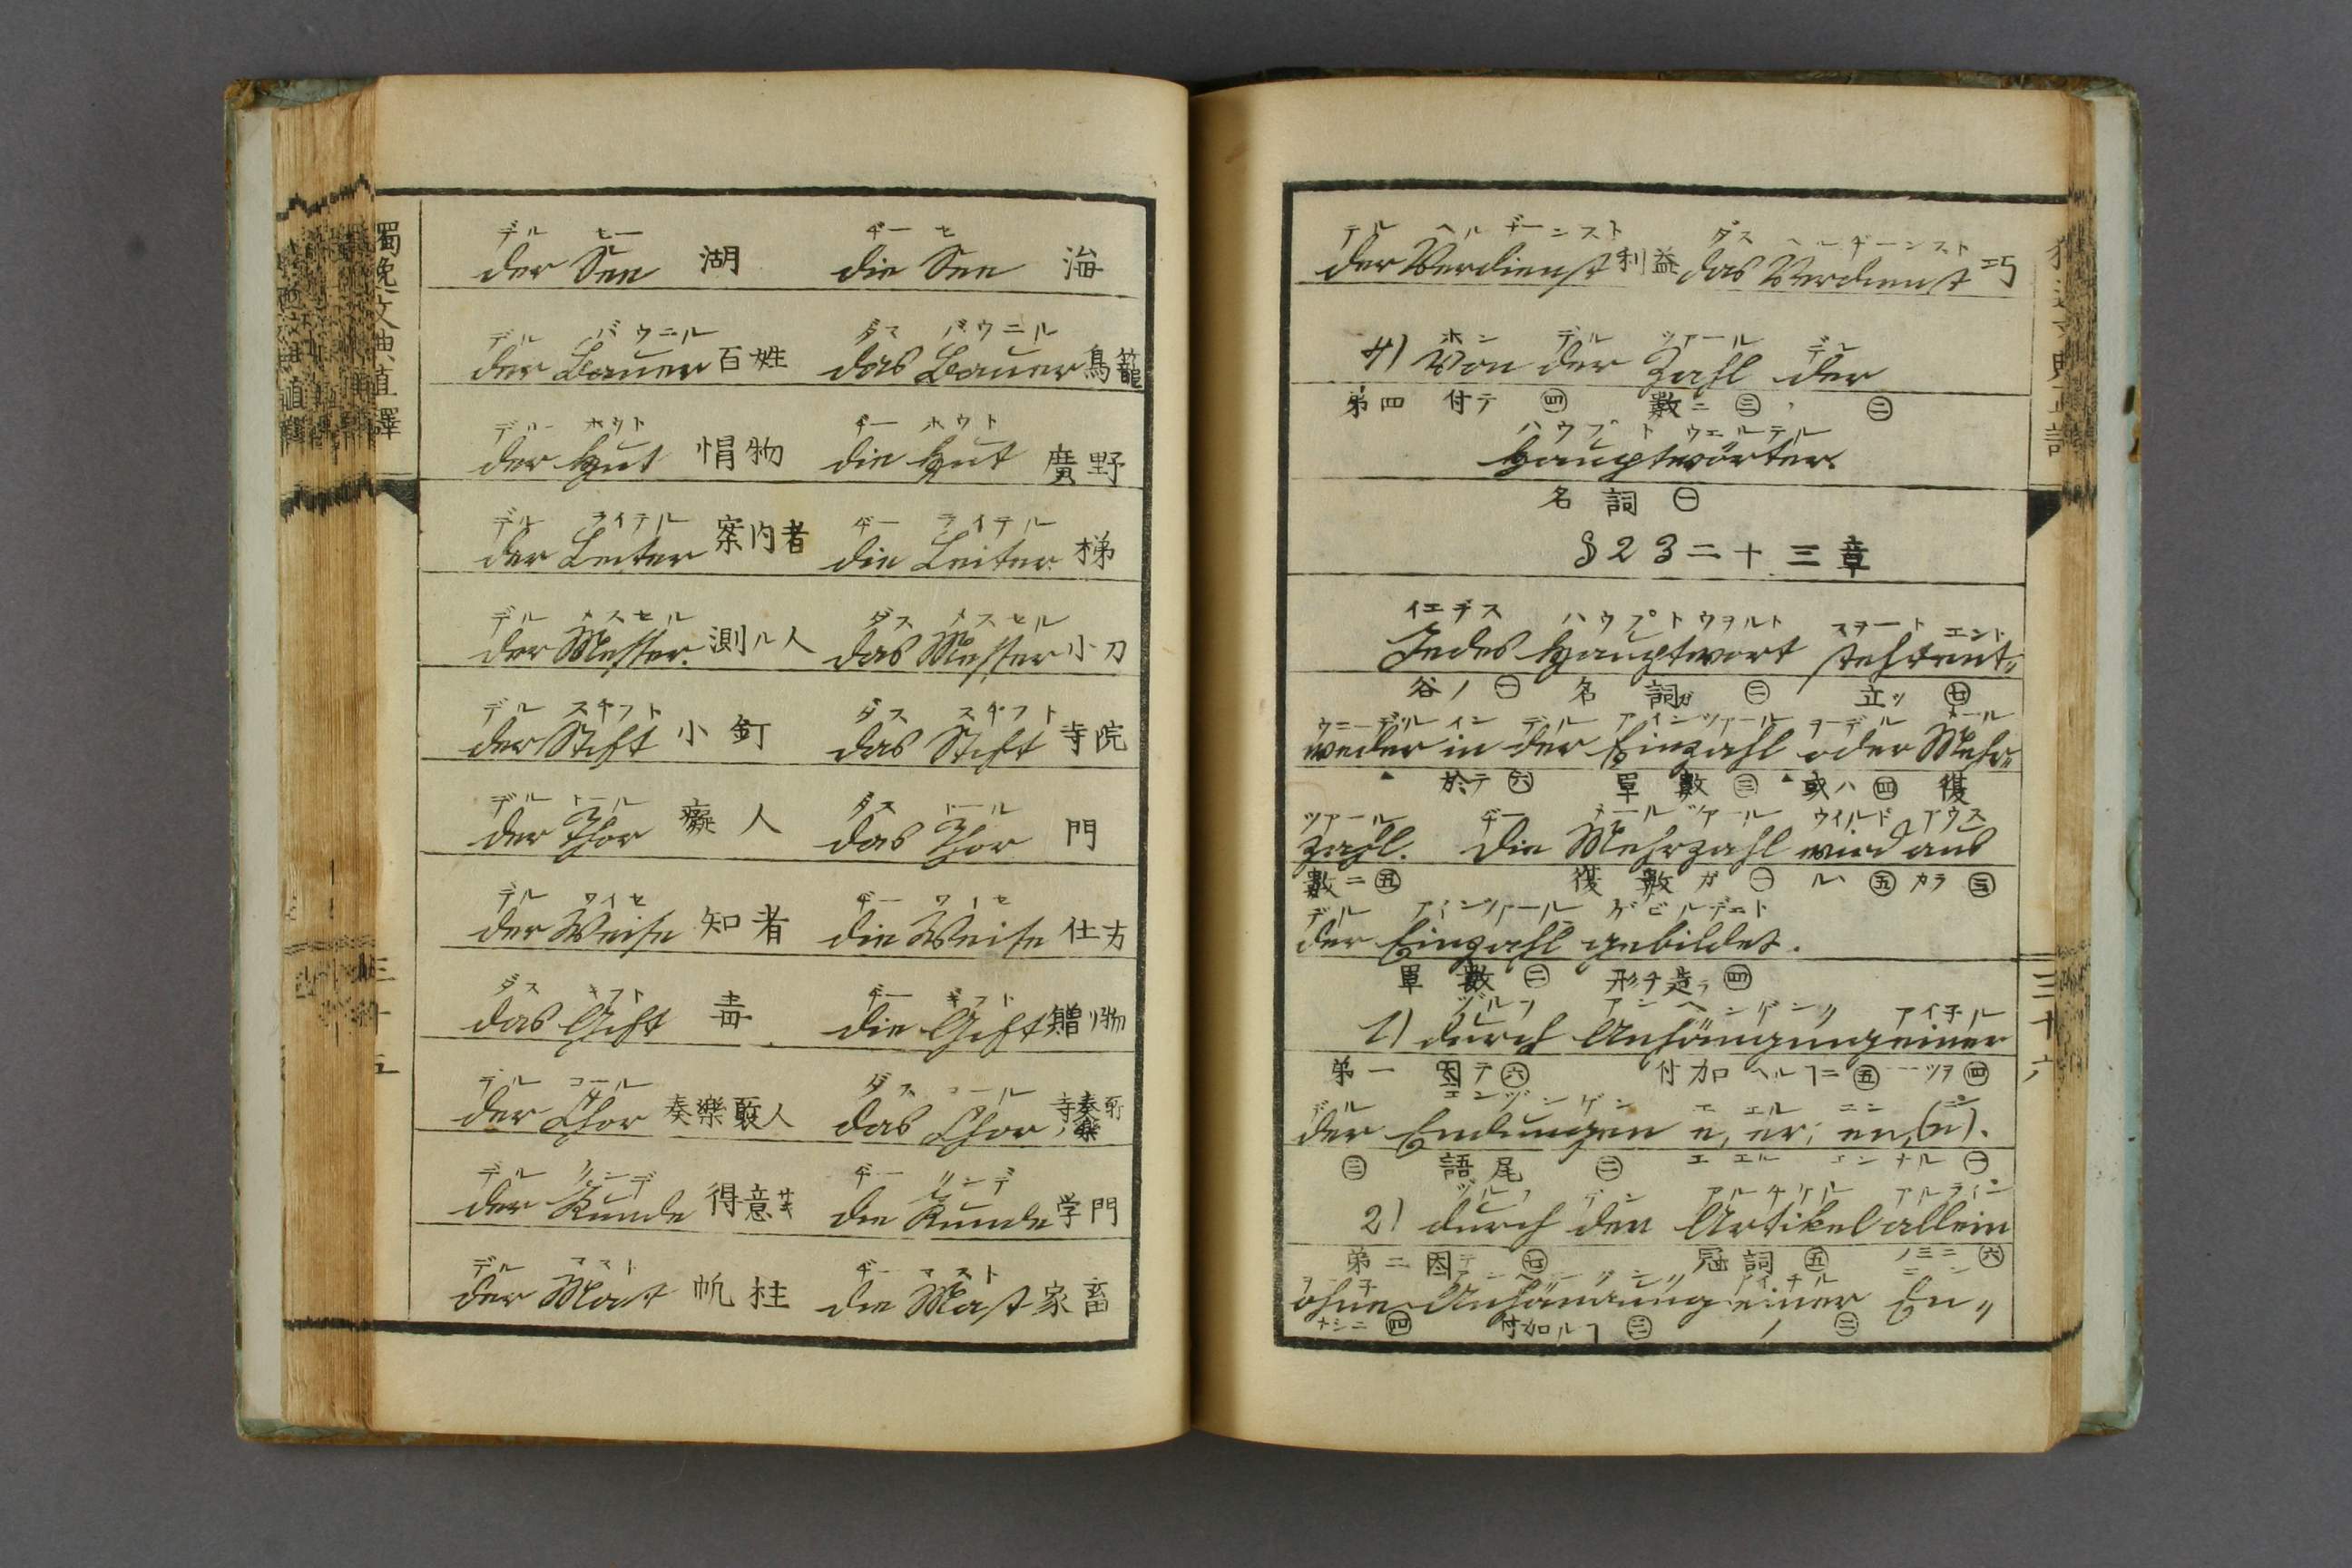 獨逸文典直譯
デル セー ヂー セ
der See 湖 die See 海
デル バウエル ダス バウエル
der Bauer 百姓 das Bauer 鳥籠
デル ホウト ヂー ホウト
der Hut 帽物 die Hut 廣野
デル ライテル ヂー ライテル
der Leiter 案内者 die Leiter 梯
デル メスセル ダス メスセル
der Messer. 測ル人 das Messer 小刀
デル スチフト ダス スチフト
der Stift 小釘 das Stift 寺院
デル トール ダス トール
der Thor 癡人 das Thor 門
デル ワイセ ヂー ワイセ
der Weise 知者 die Weise 仕方
ダス キフト ヂー ギフト
das Gift 毒 die Gift 贈リ物
デル コール ダス コール
der Chor 奏樂 人 das Chor
デル クンデ ヂー クンデ
der Kunde 得意 die Kunde 学門
デル マスト ヂー マスト
der Mast 帆柱 die Mast 家畜
三十五
デル ヘルヂーンスト ダス ヘルヂーンスト
der Verdienst 利益 das Verdienst 巧
ホン デル ツァール デル
4) Von der Zahl der
第四 付テ ㊃ 數ニ ㊂ ㊁
ハウプト ウェルテル
Hauptwörter.
名詞 ㊀
§23 二十三章
イエデス ハウプトウヲルト ステート エント
Jedes Hauptwort steht ent〃
各ノ ㊀ 名詞ガ ㊁ 立ツ ㊆
ウエーデル イン デル アインツァール ヲーデル メール
weder in der Einzahl oder Mehr〃
於テ ㊅ 單數 ㊂ 或ハ ㊃ 復
ツァール ヂー メールツァール ウイルド アウス
zahl. Die Mehrzahl wird aus
數ニ ㊄ 復數ガ ㊀ ル ㊄ カラ ㊂
デル アインツァール ゲビルデト
der Einzahl gebildet.
單數 ㊁ 形チ造ラ ㊃
ヅルフ アンヘンゲング アイネル
1) durch Anhängung einer
第一 因テ ㊅ 付加ヘルヿニ ㊄ 一ツヲ ㊃
デル エンヅンゲン エ エル エン ン
der Endungen e, er, en, (n).
㊂ 語尾 ㊁ エ エル エン ナル ㊀
ヅルフ デン アルチケル アルライン
2) durch den Artikel allein
第二 因テ ㊆ 冠詞 ㊄ ノミニ ㊅
ヲーネ アンヘンクング アイネル エン
ohne Anhängung einer En〃
ナシニ ㊃ 付加ルヿ ㊂ ノ ㊁
三十六